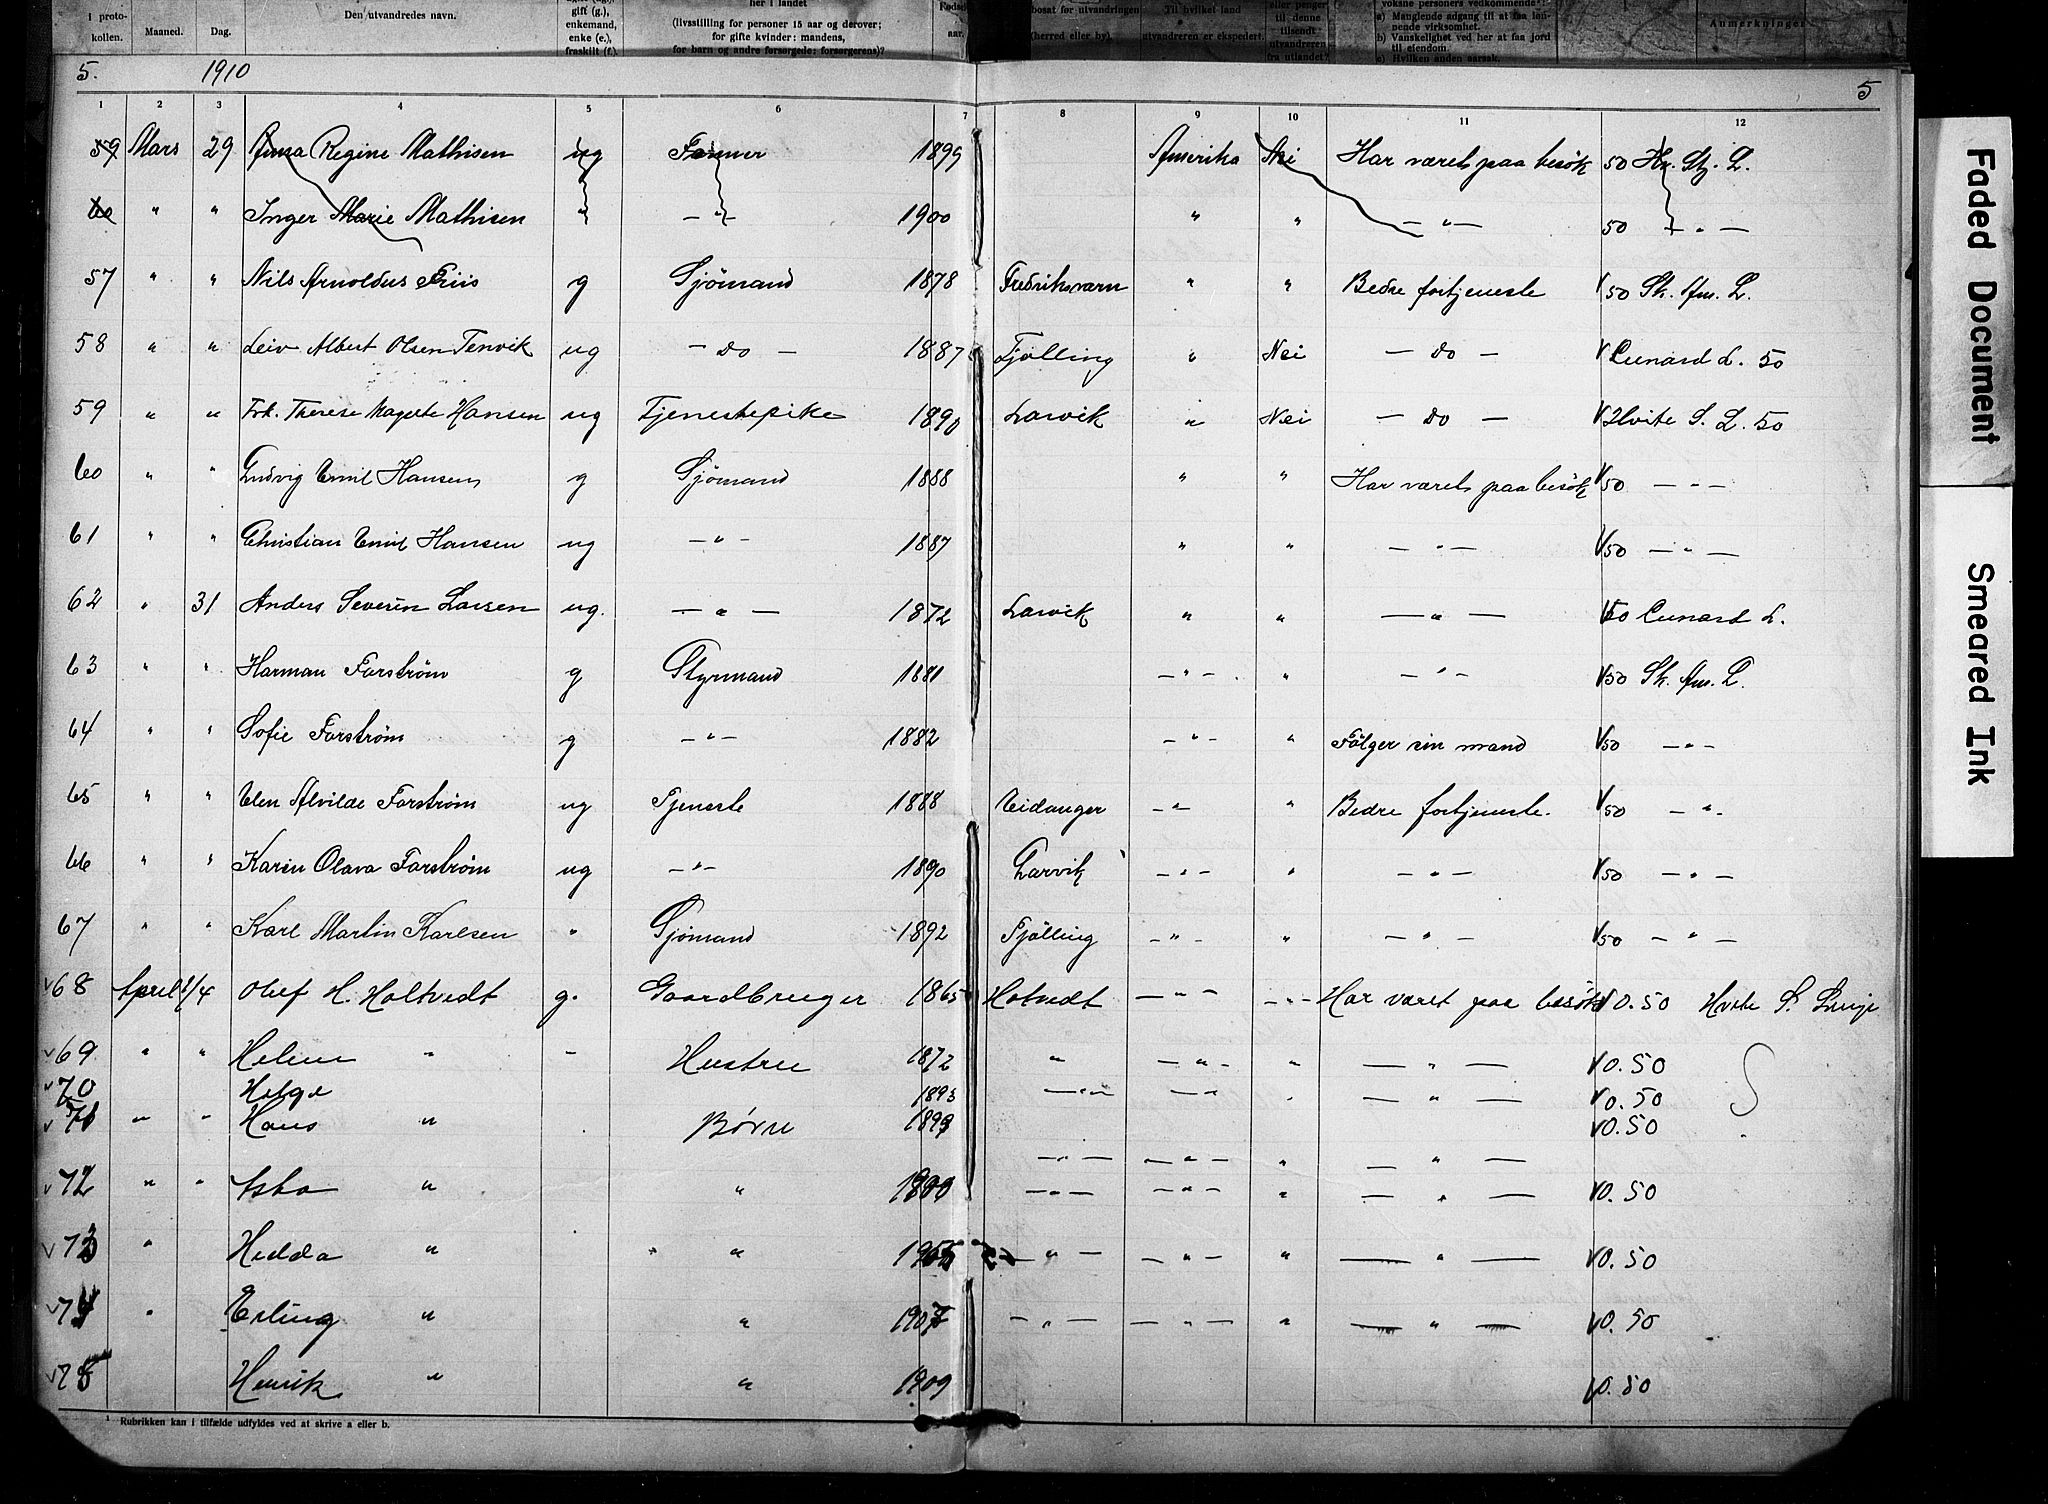 I proto-kollen. Maaned. Dag. Den utvandredes navn. gift (g.), enkemand, enke (e.), fraskilt (f.) her i landet (livsstilling for personer 15 aar og derover; for gifte kvinder: mandens, for barn og andre forsørgede: forsørgerens)? aar. bosat før utvandringen (herred eller by). Til hvilket land utvandreren er ekspedert. eller penger til denne tilsendt utvandreren fra utlandet? voksne personers vedkommende? a) Manglende adgang til at faa lønnende virksomhet. b) Vanskelighet ved her at faa jord til eiendom. c) Hvilken anden aarsak. Anmerkninger
5. 1910 5
1 2 3 4 5 6 7 8 9 10 11 12
59 Mars 29 Anna Regine Mathisen ug Farmer 1899 Amerika Nei Har været paa besök 50 Hv. Stj. L.
60 " " Inger Marie Mathisen " — " — 1900 " " — " — 50 — " —
57 " " Nils Arnoldus Friis g Sjömand 1878 Fredriksværn " " Bedre fortjeneste V 50 Sk. Am. L.
58 " " Leiv Albert Olsen Tenvik ug — Do — 1887 Tjølling " Nei — Do — V Cunard L. 50
59 " " Frk. Therese Magete Hansen ug Tjenestepike 1890 Larvik " Nei — Do — V Hvite S. L. 50
60 " " Ludvig Emil Hansen g Sjömand 1888 " " Har været paa besök V 50 — " —
61 " " Christian Emil Hansen ug — " — 1887 " " — " — V 50 — " —
62 " 31 Anders Severin Larsen ug. — " — 1872 Larvik " " — " — V 50 Cunard L.
63 " " Harman Farstrøm g Styrmand 1881 — " — " — " — V 50 Sk. Am. L.
64 " " Sofie Farstrøm g — " — 1882 — " — " Fölger sin mand V 50 — " —
65 " " Elen Alvilde Farstrøm ug Tjeneste 1888 Eidanger — " " Bedre fortjeneste. V 50 — " .
66 " " Karin Olava Farstrøm ug — " — 1890 Larvik — " — " — " — V 50 — " —
67 " " Karl Martin Karlsen " Sjömand 1892 Tjølling — " — " — " — V 50 — " —
v 68 April 1/4 Oluf H. Holtvedt g. Gaardbruger 1865 Hotvedt — " — — " — Har været paa besök V 0.50 Hvite S. Linje
v 69 " " Helene " — Hustru 1872 " — " — " — " — V 0.50
v 70 Helge 1893 — " — — " — " — " — V 0.50
v 71 " " Hans " Børn 1898 V 0.50
— " — — " — " — " —
v 72 " " Asta " " 1900 — " — — " — " — " — V 0.50
v 73 " Hedda " " " 1905 — " — — " — " — " — V 0.50
v 74 " Erling " " 1907 — " — — " — " — " — V 0.50
v 75 Henrik " " 1909 V 0.50
¹ Rubrikken kan i tilfælde udfyldes ved at skrive a eller b.
Faded Document
Smeared Ink